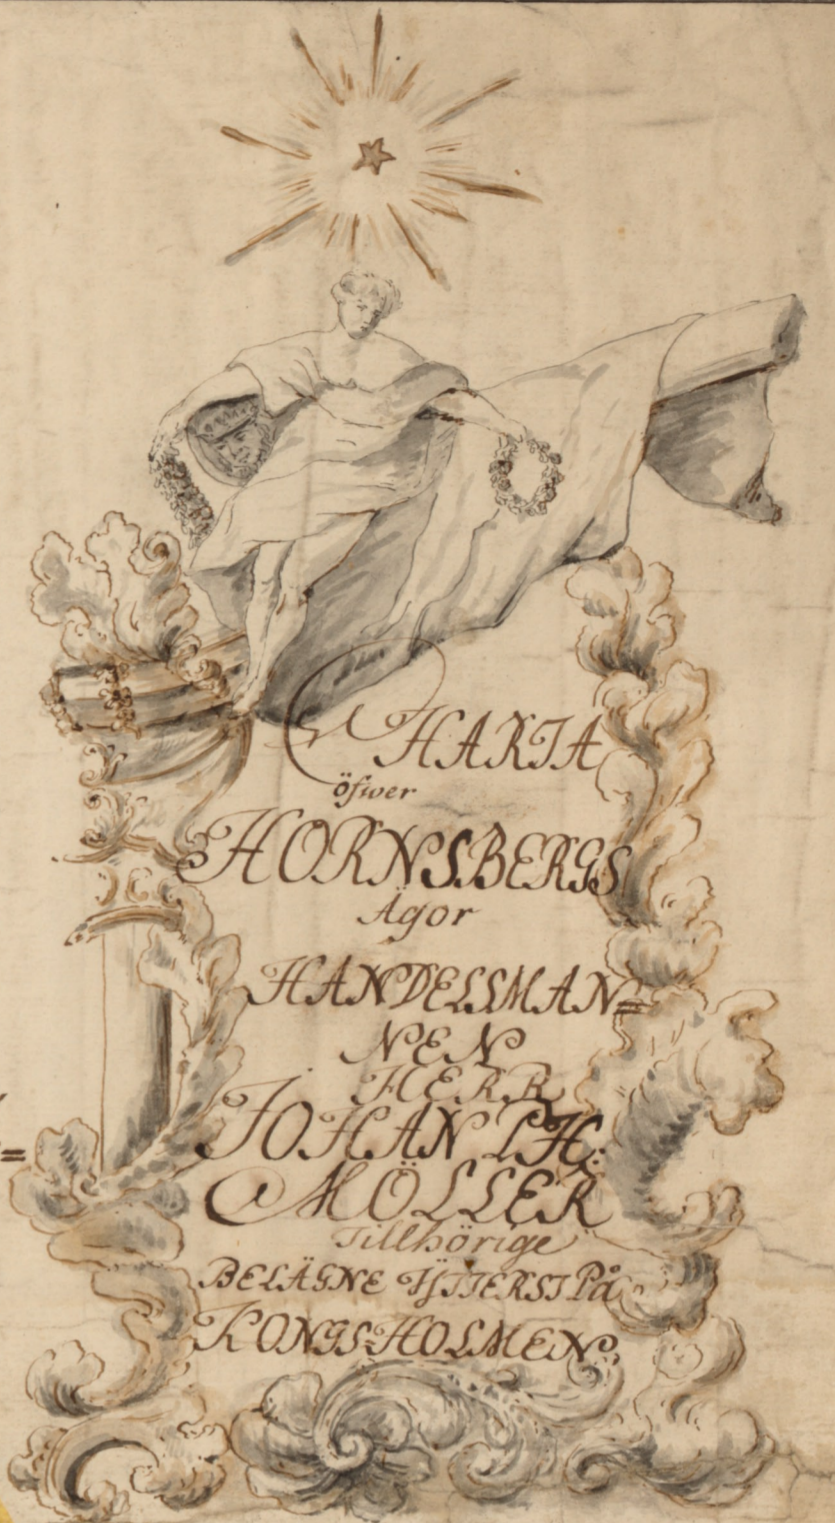 CHARTA
öfwer
HORNSBERGS
Ägor
HANDELSMAN=
NEN
HERR
JOHAN CH:
MÖLLER
Tillhörige
BELÄGNE YTTERST På
KONGS-HOLMEN